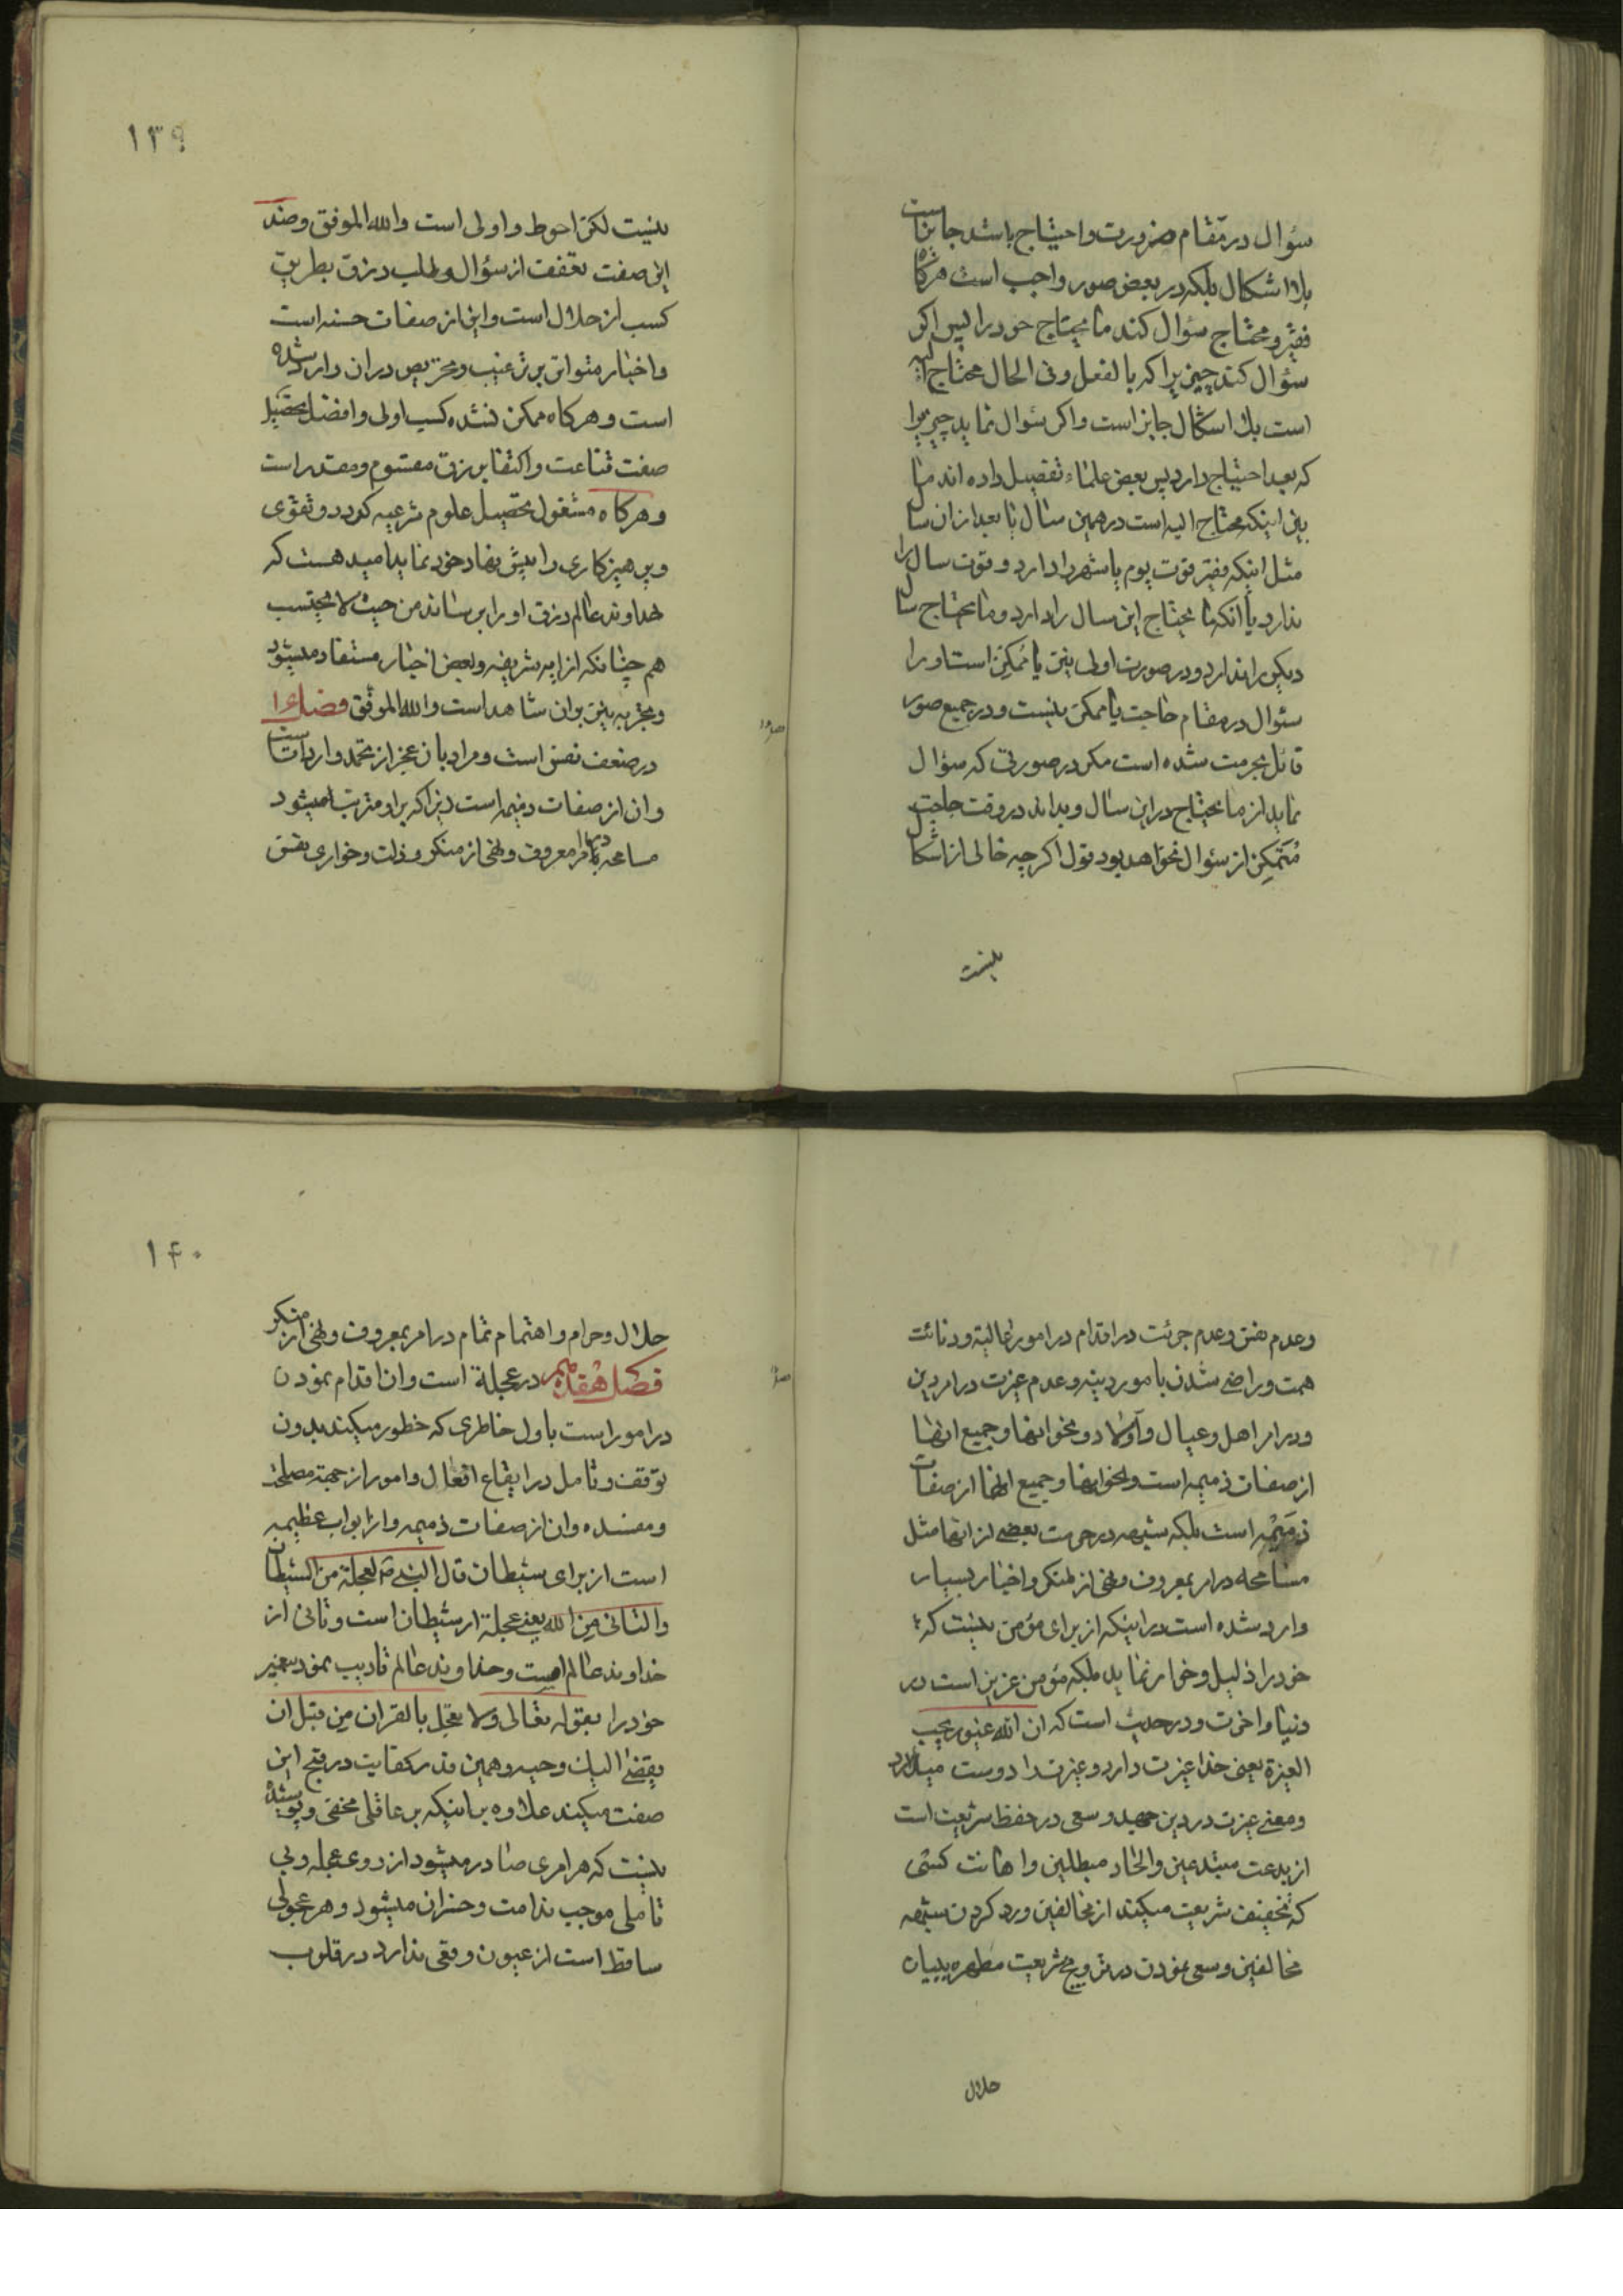 سؤال در مقام ضرورت واحتیاج باشد جایز است
بلا اشکال بلکه در بعض صور واجب است هرگاه
فقیر و محتاج سؤال کند ما یحتاج خود را پس اکر
سؤال کند چیزیرا که بالفعل وفی الحال محتاج الیه
است بلا اشکال جایز است واکر سؤال نماید چیزیرا
که بعد احتیاج دارد پس بعض علماء تفصیل داده اند میا
بین اینکه محتاج الیه است در همین سال یا بعد از ان سال
مثل اینکه فقیر قوت یوم یا شهر را دارد و قوت سال را
ندارد یا انکه ما یحتاج این سال را دارد وما یحتاج سال
دیکر را ندارد ودر صورت اولی نیز یا ممکن است او را
سئوال در مقام حاجت یا ممکن نیست ودر جمیع صور
قائل بحرمت شده است مکر در صورتی که سؤال
نماید از ما یحتاج در این سال وبداند در وقت حاجت
متمکن از سؤال نخواهد بود قول اکرچه خالی از اشکال
نیست
۱۳۹
نیست لکن احوط واولی است والله الموفق وضد
این صفت تعفف از سؤال وطلب رزق بطریق
کسب از حلال است واین از صفات حسنه است
واخبار متواتر بر ترغیب وتحریص در ان وارد شده
است وهرکاه ممکن نشد کسب اولی وافضل تحصیل
صفت قناعت واکتفا برزق مقسوم ومقدر است
وهرکاه مشغول تحصیل علوم شرعیه کردد وتقوی
وپرهیزکاری را پیش نهاد خود نماید امید هست که
خداوند عالم رزق او را برساند من حیث لا یحتسب
هم چنانکه از ایه شریفه وبعض اخبار مستفاد میشود
وتجربه نیز بر ان شاهد است والله الموفق فصل ۱۶
در ضعف نفس است ومراد بان عجز از تحمد واردات است
وان از صفات ذمیمه است زیرا که بر او مترتب میشود
مسامحه در امر بمعروف ونهی از منکر وذلت وخواری نفس
وعدم نفس وعدم جرئت در اقدام در امور عالیة ودنائت
همت وراضی شدن بامور دنیه وعدم غیرت در امر دین
ودر امر اهل وعیال واولاد ونحو اینها وجمیع اینها
از صفات ذمیمه است ونحو اینها وجمیع اینها از صفات
ذمیمه است بلکه شبهه در حرمت بعضی از انها مثل
مسامحه در امر بمعروف ونهی از منکر واخبار بسیار
وارد شده است در اینکه از برای مؤمن نیست که
خود را ذلیل وخوار نماید بلکه مؤمن عزیز است در
دنیا واخرت ودر حدیث است که ان الله غیور یحب
الغیرة یعنی خدا غیرت دارد وغیرت را دوست میدارد
ومعنی غیرت در دین جهد وسعی در حفظ شریعت است
از بدعت مبتدعین والحاد مبطلین واهانت کسی
که تخفیف شریعت میکند از مخالفین ورد کردن شبهه
مخالفین وسعی نمودن در ترویج شریعت مطهره ببیان
حلال
۱۴۰
حلال وحرام واهتمام تمام در امر بمعروف ونهی از منکر
فصل هفدهم در عجلة است وان اقدام نمودن
در امور است باول خاطری که خطور میکند بدون
توقف وتامل در ایقاع افعال وامور از جهة مصلحة
ومفسده وان از صفات ذمیمه واز ابواب عظیمه
است از برای شیطان قال النبی ص العجلة من الشیطان
والتانی من الله یعنی عجلة از شیطان است وتانی از
خداوند عالم است وخداوند عالم تادیب نمود پیغمبر
خود را بقوله تعالی ولا تعجل بالقران من قبل ان
یقضی الیك وحیه وهمین قدر کفایت در قبح این
صفت میکند علاوه بر اینکه بر عاقلی مخفی وپوشیده
نیست که هر امری صادر میشود از روی عجله وبی
تاملی موجب ندامت وخسران میشود وهر عجولی
ساقط است از عیون وقعی ندارد در قلوب